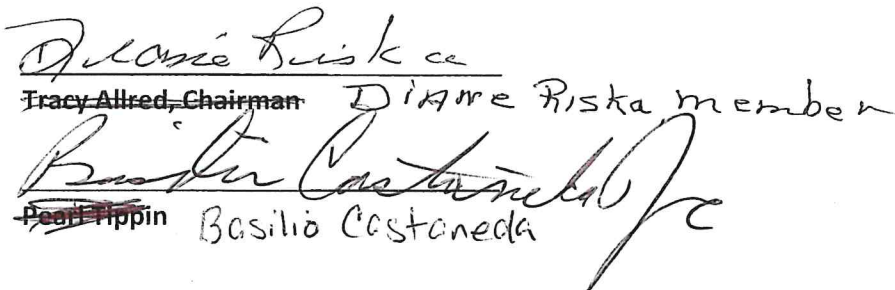 Diane Riska
Tracy Allred, Chairman Diane Riska, member
Basilio Castañeda Jr
Pearl Tippin Basilio Castaneda